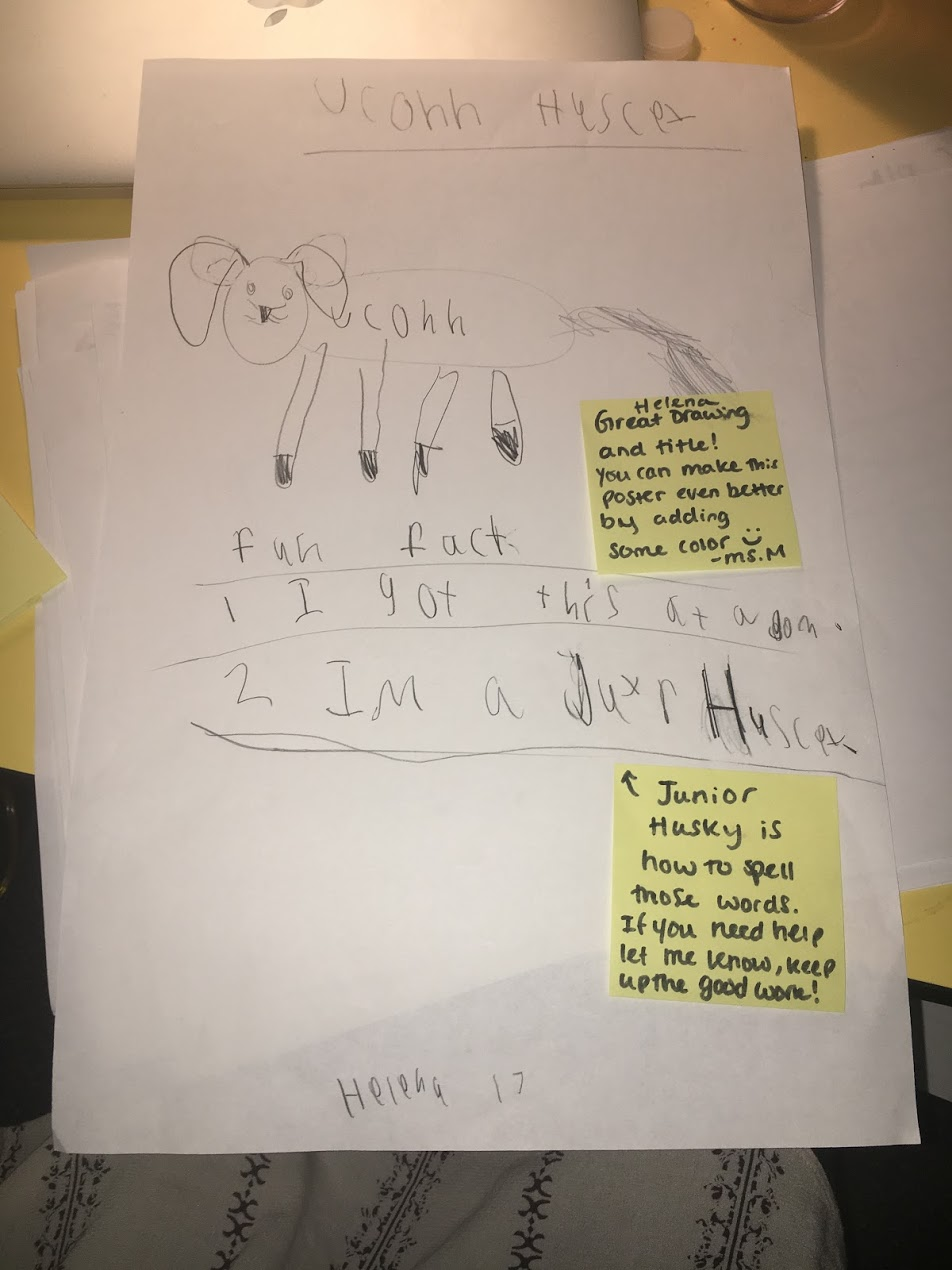 Uconn Huscey
Uconn
Helena
Great Drawing
and title!
You can make this
poster even better
by adding
some color
-ms.M
fun fact.
1 I got this at a
2 Im a Huscey
↑ Junior
Husky is
how to spell
those words.
If you need help
let me know, keep
up the good work!
Helena 17